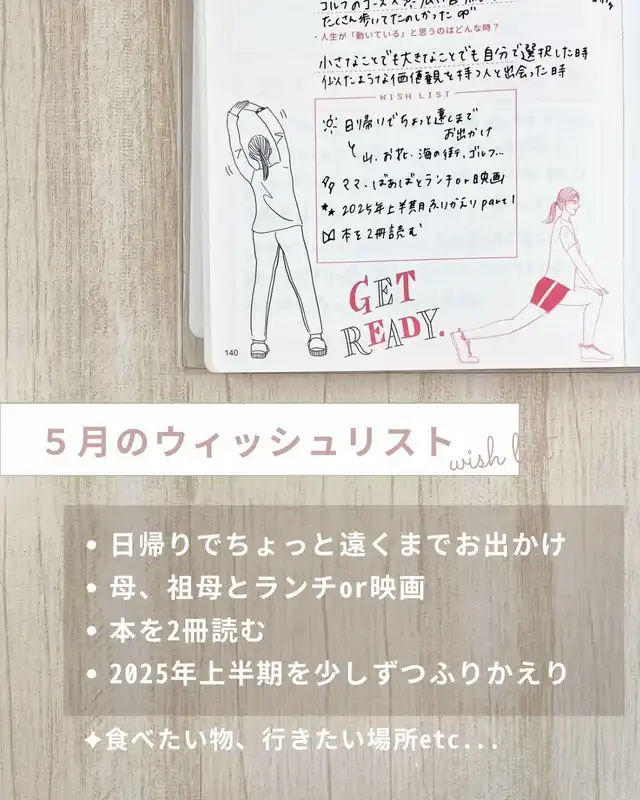 たくさん歩いてたのしかった
・人生が「動いている」と思うのはどんな時？
小さなことでも大きなことでも自分で選択した時
似たような価値観を持つ人と出会った時
WISH LIST
日帰りでちょっと遠くまで
お出かけ
山、お花、海の街、ゴルフ...
ママ、ばあばとランチor映画
2025年上半期ふりかえり part1
本を2冊読む
GET
READY.
140
5月のウィッシュリスト
wish list
• 日帰りでちょっと遠くまでお出かけ
• 母、祖母とランチor映画
• 本を2冊読む
• 2025年上半期を少しずつふりかえり
✦食べたい物、行きたい場所etc...